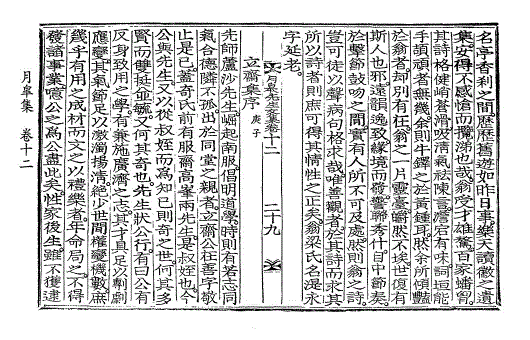 名亭香刹之間歷歷舊遊如昨日事樂天讀微之遺
集安得不感愴而攬涕也哉翁受才雄驁百家蟠胷
其詩格健峭蒼滑吸淸氣祛陳言澹宕有味詞垣能
手頡頏者無幾余則牛鐸之於黃鍾耳然余所傾豔
於翁者却別有在翁之一片靈臺皭然不埃世復有
斯人也邪遠韻逸致緣境而發響聯秀什目中節奏
於擊節鼓吻之間實有人所不可及處然則翁之詩
豈可徒以聲病句格求哉唯善觀者於其詩而求其
所以詩者則庶可得其情性之正矣翁梁氏名湜永
字延老
立齋集序 庚子
月皐先生文集卷十二 二十九
先師蘆沙先生崛起南服倡明道學時則有若志同
氣合德隣不孤出於同堂之親者立齋公在善字敬
止是已蓋奇氏前有服齋高峯兩先生是叔姪也今
公與先生又以從叔姪而爲知己則奇之世何其多
賢而雙挺並毓又何其奇也先生狀公行有曰公有
反身致用之學有兼施廣濟之志其才具足以剸劇
應變其氣節足以激濁揚淸絶少世間權變機數庶
幾乎有用之成材而文之以禮樂者年命局之不得
發諸事業嚱公之爲公盡此矣性家後生雖不獲逮
月皐集 卷十二